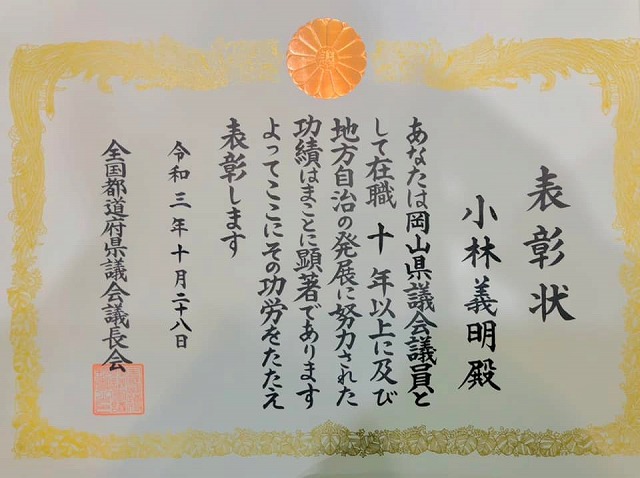 表彰状
小林義明殿
あなたは岡山県議会議員と
して在職十年以上に及び
地方自治の発展に努力された
功績はまことに顕著であります
よってここにその功労をたたえ
表彰します
令和三年十月二十八日
全国都道府県議会議長会